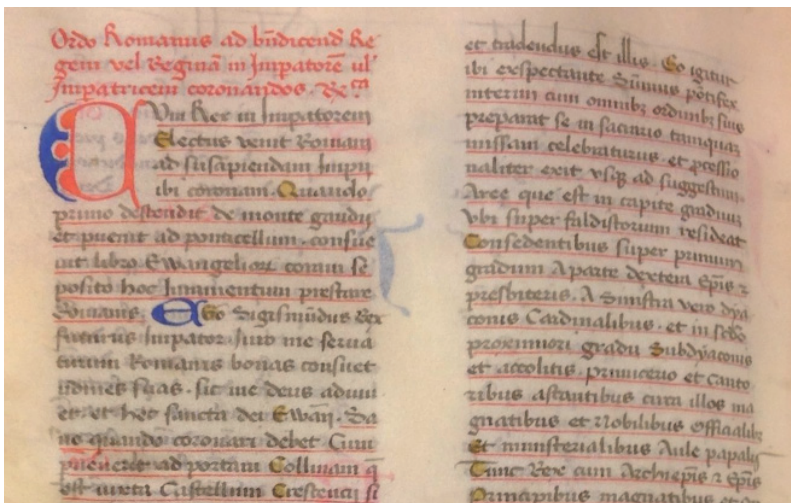 Ordo Romanus ad bñdicendũ Re
gem vel Reginã in Imp̃atorẽ ul'
Imp̃atricem coronandos. Rca
Cum Rex in Imp̃atorem
Electus venit Romam
ad suscipiendam Imp̃ij
ibi coronam. Quando
primo descendit de monte gaudij
et p̃uenit ad ponticellum. consue
uit libro Ewangelioꝝ coram se
posito hoc Iuramentum prestare
Romanis. Ego Sigismũdus Rex
futurus Imp̃ator Iuro me serua
turum Romanis bonas consuet
udines suas. sic me deus adiuu
et et hec sancta dei Ewañ. Sa
ne quando coronari debet Cum
p̃uenerit ad portam Collinam q̃
est iuxta Castellum Crescencij si
et tradendus est illis. Eo igitur
ibi exspectante Sũmus põtifex
interim cum omnibꝫ ordinibꝫ suis
preparat se in sacrario tamquam
missam celebraturus. et p̃cessio
naliter exit usqꝫ ad suggestum
Aree que est in capite graduum
vbi super faldistorium resideat
Consedentibus super primum
gradum A parte dextera Ep̃is ⁊
presbiteris. A Sinistra vero dya
conis Cardinalibus. et in sc̃do
proximiori gradu Subdyaconis
et accolitis. primicerio et Canto
ribus astantibus circa illos ma
gnatibus et Nobilibus Officialibꝫ
Et ministerialibus Aule papalis
Tunc Rex cum Archiep̃is ⁊ Ep̃is
Principibus magnatibus